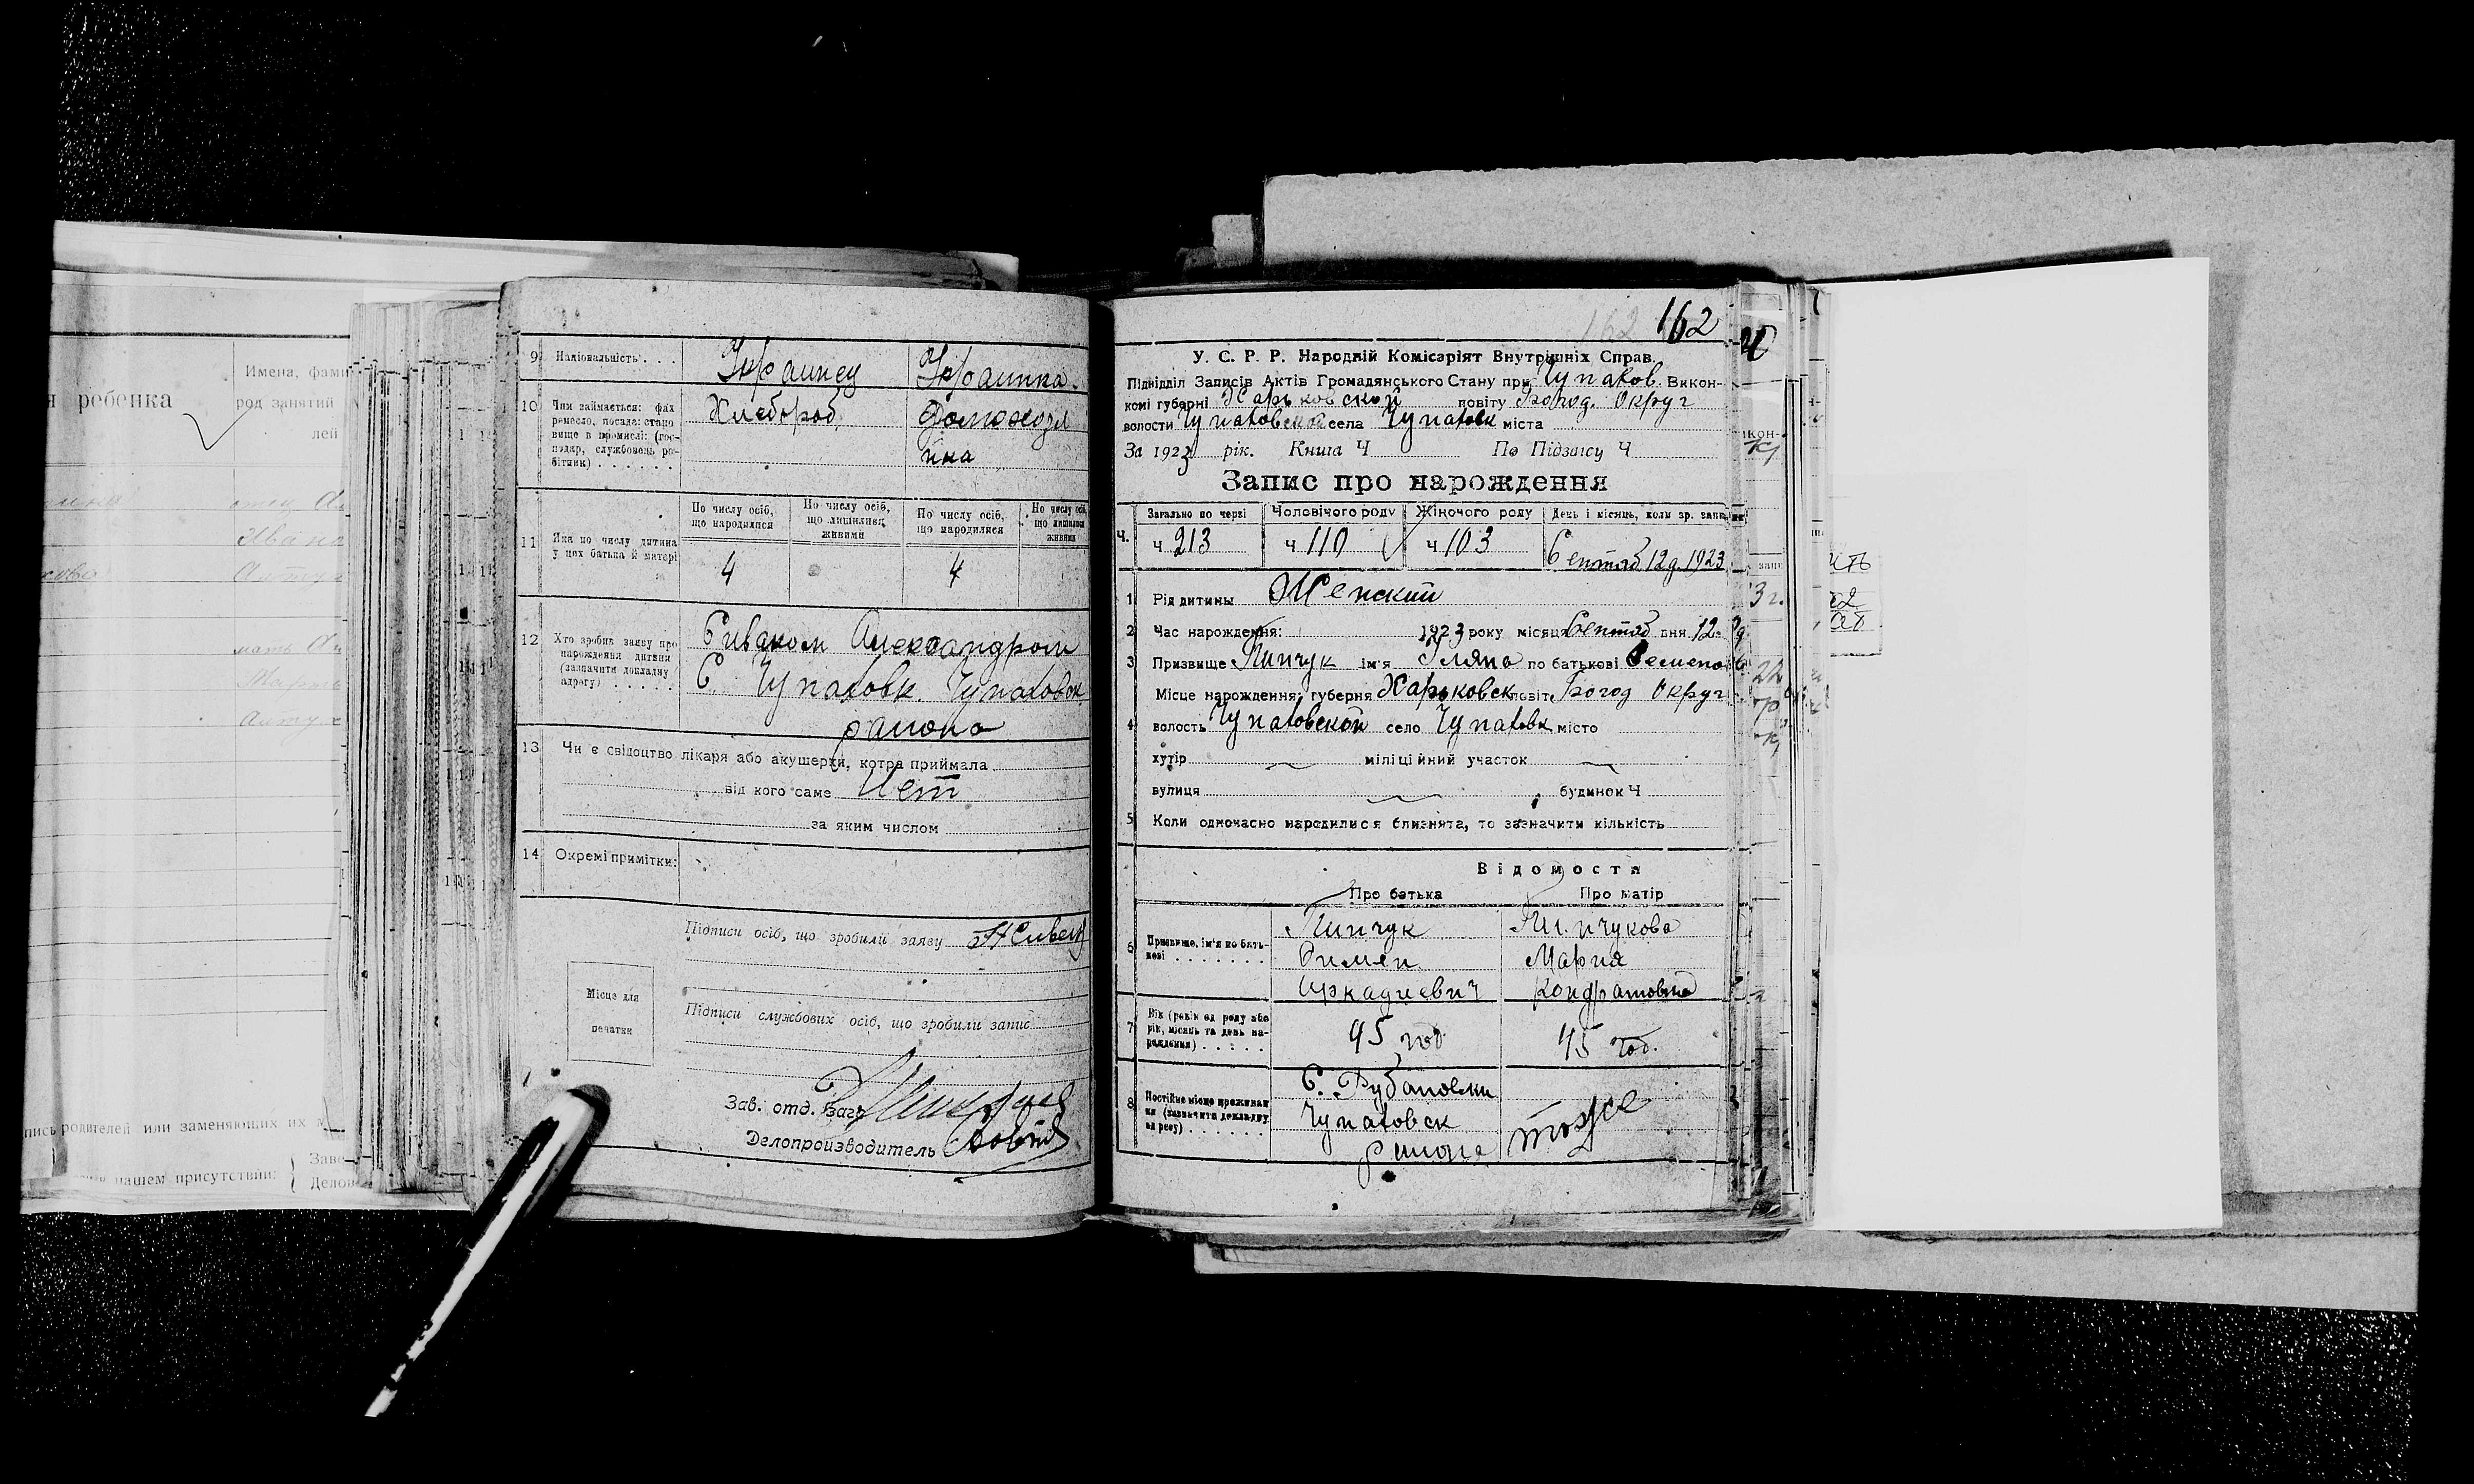 ребенка
Имена, фами
род занятий
лей
Ивано
мать
родителей или заменяющих их
нашем присутствии:
Заве
Делов
9 Національність . . . Украинец Украинка.
10 Чим займається: фах Хлебороб, Домохозя
ремесло, посада: стано йка
вище в промислі: (гос-
подар, службовець ро-
бітник) . . . . . .
По числу осіб, що народилися По числу осіб, що лишились живими По числу осіб, що народилися По числу осіб, що лишились живими
11 Яка по числу дитина
у цих батька й матері 4 4
12 Хто зробив заяву про Сиваком Александром
народження дитини С. Чупаховк. Чупаховск
(зазначити докладну района
адресу) . . . . .
13 Чи є свідоцтво лікаря або акушерки, котра приймала
від кого саме Нет
за яким числом
14 Окремі примітки:
Підписи осіб, що зробили заяву А Сивак
Місце для
печатки
Підписи службових осіб, що зробили запис
Зав. отд. Загс
Делопроизводитель
162 162
У. С. Р. Р. Народній Комісаріят Внутрішніх Справ.
Підвідділ Записів Актів Громадянського Стану при Чупахов. Викон-
комі губерні Харьковской повіту Богод. Округ
волости Чупаховской села Чупаховк міста
За 1923 рік. Книга Ч По Підзапису Ч
Запис про нарождення
Загально по черзі Чоловічого роду Жіночого роду День і місяць, коли зр. запис
Ч. Ч 213 Ч 110 Ч 103 Сентяб 12 д. 1923
1 Рід дитини Женский
2 Час нарождення: 1923 року місяця Сентяб дня 12
3 Призвище Пинчук ім'я Уляна по батькові Семено
Місце нарождення: губерня Харьковск повіт Богод Округ
4 волость Чупаховской село Чупаховк місто
хутір міліційний участок
вулиця будинок Ч
5 Коли одночасно народилися близнята, то зазначити кількість
Відомости
Про батька Про матір
6 Призвище, ім'я по бать- Пинчук Пинчукова
кові . . . . . . . Симен Мария
Аркадиевич Кондратовна
7 Вік (років од роду або
рік, місяць та день на- 45 год 45 год.
рождення) . . . . .
8 Постійне місце проживан С. Рубановки
ня (зазначити докладну Чупаховск тоже
адресу) . . . . . . района